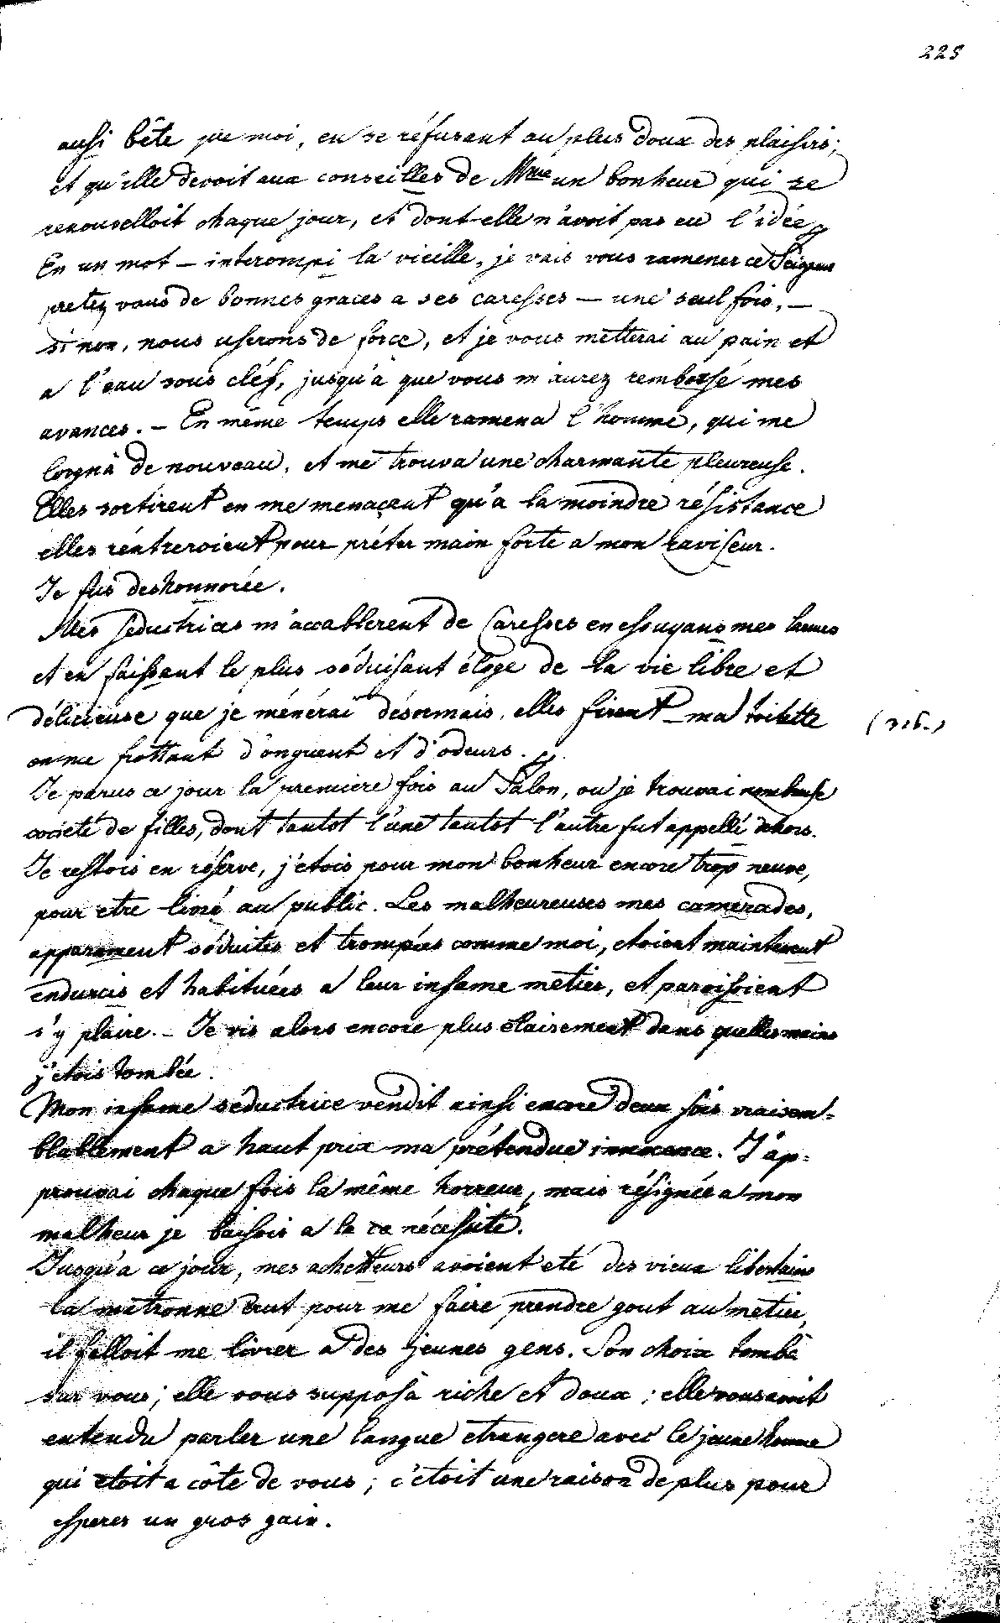 225
aussi bête que moi, en se réfusant au plus doux des plaisirs;
et qu'elle devoit aux conseilles de Mme un bonheur qui se
renouvelloit chaque jour, et dont elle n'avoit pas eu l'idée,
En un mot — interompi la vieille, je vais vous ramener ce Seigneur
pretez vous de bonnes graces a ses caresses — une seul fois, —
si non, nous userons de force, et je vous metterai au pain et
a l'eau sous cléf, jusqu'a que vous m'aurez remborsé mes
avances. — En même temps elle ramena l'homme, qui me
lorgnà de nouveau, et me trouva une charmante pleureuse.
Elles sortirent en me menaçent qu'a la moindre résistance
elles réntreroient pour préter main forte a mon raviseur.
Je fus deshonnorée.
Mes séductrices m'accablerent de Caresses en essuyans mes larmes
et en faissent le plus séduisant éloge de la vie libre et
délicieuse que je ménérai désormais, elles firent ma toilette
en me frottant d'onguent et d'odeurs.
Je parus ce jour la premiere fois au Salon, ou je trouvai nombreuse
societé de filles, dont tantot l'une tantot l'autre fut appellé dehors.
Je restois en réserve, j'etois pour mon bonheur encore trop neuve,
pour etre livré au public. Les malheureuses mes camerades,
apparament séduites et trompées comme moi, etoient maintenent
endurcis et habituées a leur infame metier, et paroissoient
s'y plaire. — Je vis alors encore plus clairement dans quelles mains
j'etois tombée.
Mon infame séductrice vendit ainsi encore deux fois vraisem-
blablement a haut prix ma prétendue innocence. J'ap-
prouvai chaque fois la même horreur, mais résignée a mon
malheur je baissois a la nécessité.
Jusqu'a ce jour, mes achetteurs avoient eté des vieux libertains
la matronne crut pour me faire prendre gout au metier,
il falloit me livrer a des jeunes gens. Son choix tombà
sur vous; elle vous supposà riche et doux; elle vous avoit
entendu parler une langue etrangere avec le jeune homme
qui etoit a côte de vous; c'etoit une raison de plus pour
esperer un gros gain.